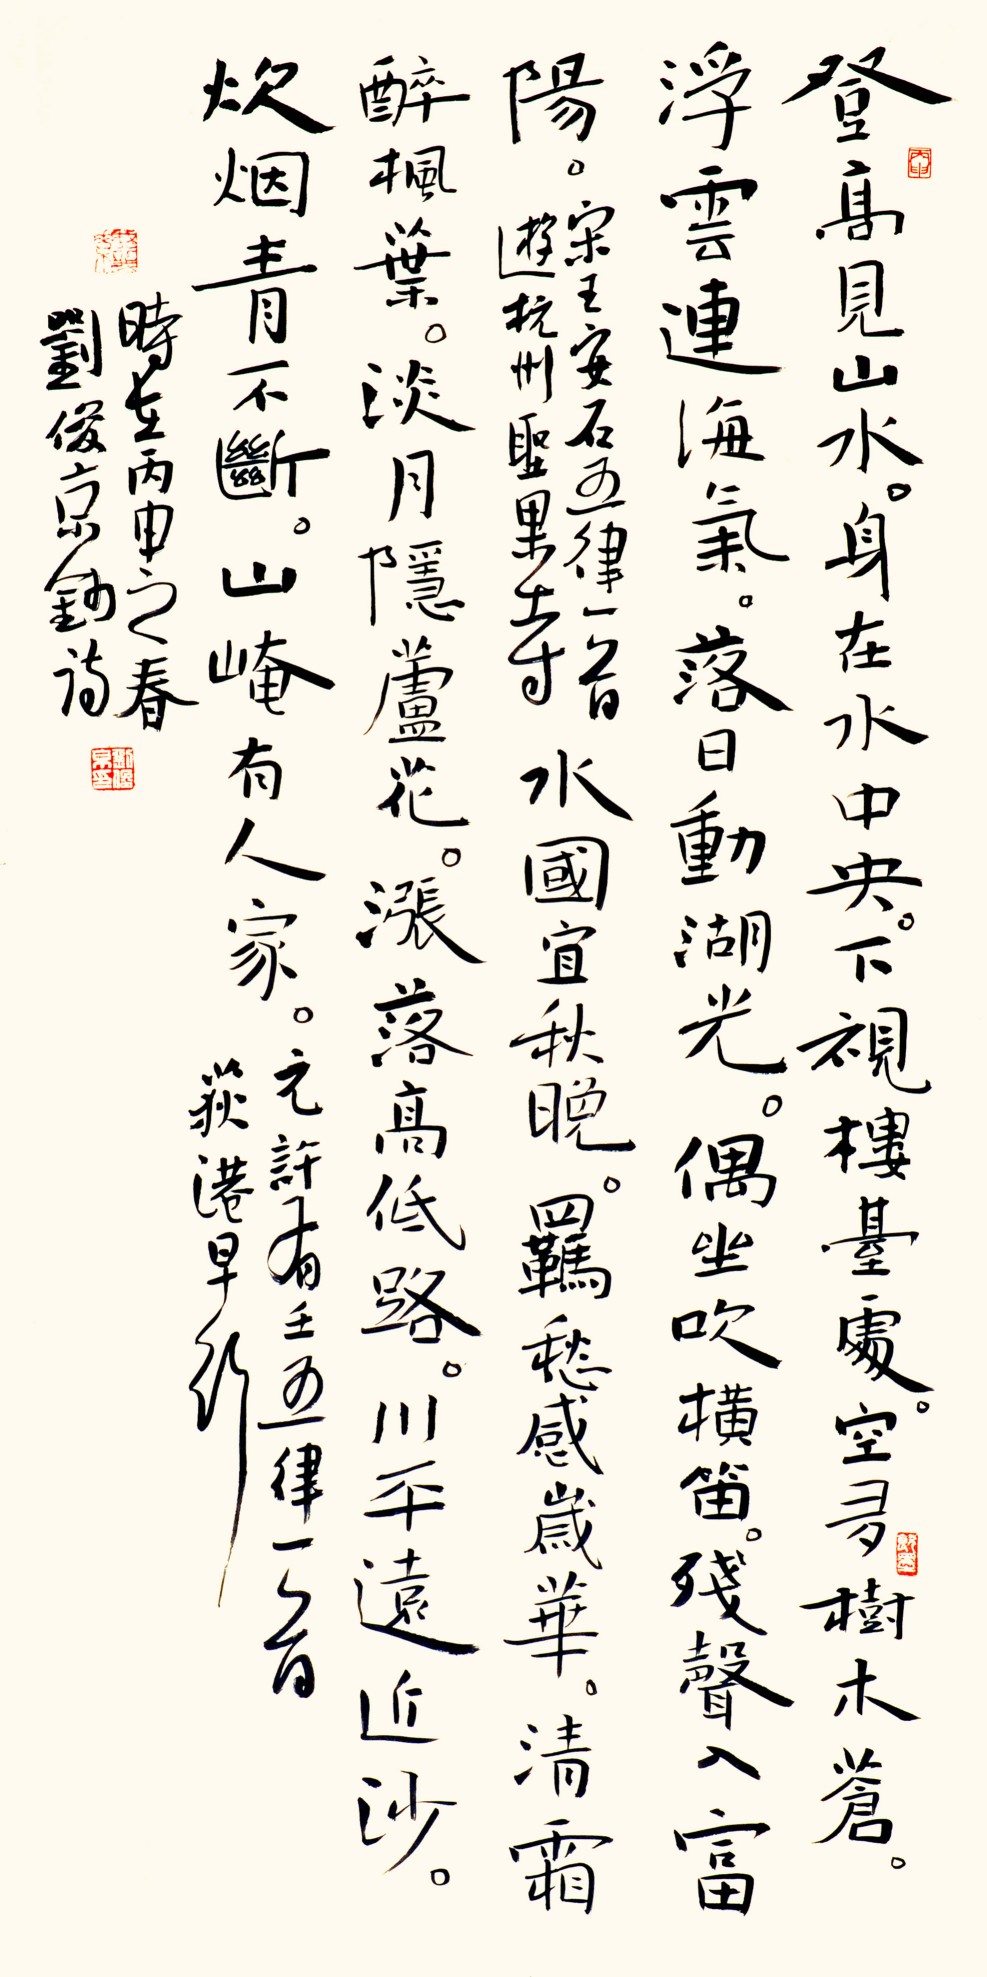 登高見山水。身在水中央。下視樓臺處。空多樹木蒼。
浮雲連海氣。落日動湖光。偶坐吹橫笛。殘聲入富
陽。
宋王安石五律一首
遊杭州聖果寺
水國宜秋晚。羈愁感歲華。清霜
醉楓葉。淡月隱蘆花。漲落高低路。川平遠近沙。
炊烟青不斷。山崦有人家。
元許有壬五律一首
荻港早行
時在丙申之春
劉俊京鈔詩
丙申
劉俊京印